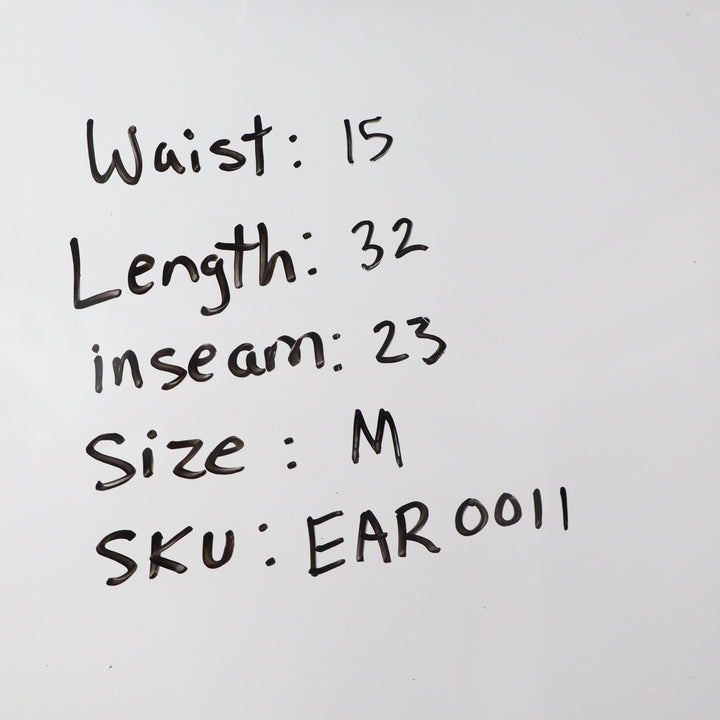 Waist: 15
Length: 32
inseam: 23
Size: M
SKU: EAR0011